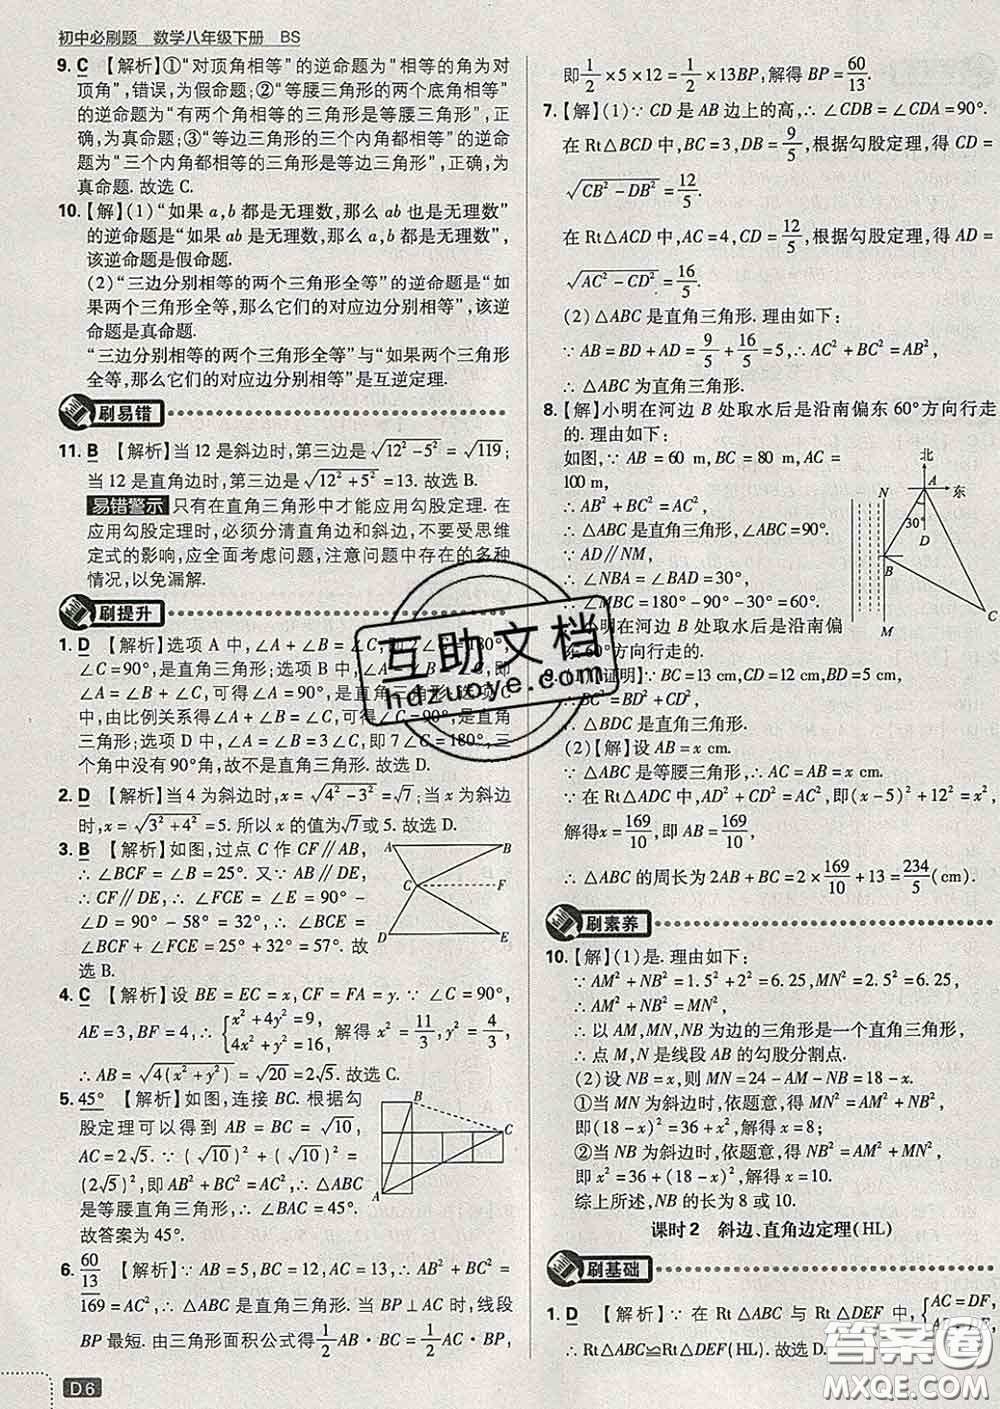 初中必刷题 数学八年级下册 BS
9. C 【解析】①“对顶角相等”的逆命题为“相等的角为对
顶角”,错误,为假命题;②“等腰三角形的两个底角相等”
的逆命题为“有两个角相等的三角形是等腰三角形”,正
确,为真命题;③“等边三角形的三个内角都相等”的逆命
题为“三个内角都相等的三角形是等边三角形”,正确,为
真命题.故选 C.
10.【解】(1)“如果 a,b 都是无理数,那么 ab 也是无理数”
的逆命题是“如果 ab 是无理数,那么 a,b 都是无理数”,
该逆命题是假命题.
(2)“三边分别相等的两个三角形全等”的逆命题是“如
果两个三角形全等,那么它们的对应边分别相等”,该逆
命题是真命题.
“三边分别相等的两个三角形全等”与“如果两个三角形
全等,那么它们的对应边分别相等”是互逆定理.
刷易错
11. B 【解析】当 12 是斜边时,第三边是√(12²-5²)=√119;
当 12 是直角边时,第三边是√(12²+5²)=13.故选 B.
易错警示 只有在直角三角形中才能应用勾股定理.在
应用勾股定理时,必须分清直角边和斜边,不要受思维
定式的影响,应全面考虑问题,注意问题中存在的多种
情况,以免漏解.
刷提升
1. D 【解析】选项 A 中,∠A+∠B=∠C,即2∠C=180°,
∠C=90°,是直角三角形;选项 B 中,∠A-∠B=∠C,即
∠A=∠B+∠C,可得∠A=90°,是直角三角形;选项 C
中,由比例关系得∠A+∠B=∠C,可得∠C=90°,是直角
三角形;选项 D 中,∠A=∠B=3∠C,即 7∠C=180°,三
个角中没有90°角,故不是直角三角形.故选 D.
2. D 【解析】当 4 为斜边时,x=√(4²-3²)=√7;当 x 为斜边
时,x=√(3²+4²)=5.所以 x 的值为√7或 5.故选 D.
3. B 【解析】如图,过点 C 作 CF∥AB,
∴∠BCF=∠B=25°.又∵AB∥DE,
∴CF∥DE,∴∠FCE=∠E=90°-
∠D=90°-58°=32°,∴∠BCE=
∠BCF+∠FCE=25°+32°=57°.故
选 B.
A B C F D E
4. C 【解析】设 BE=EC=x,CF=FA=y.∵∠C=90°,
AE=3,BF=4,∴{x²+4y²=9, 4x²+y²=16, 解得 x²=11/3,y²=4/3,
∴AB=√(4(x²+y²))=√20=2√5.故选 C.
5. 45° 【解析】如图,连接 BC.根据勾
股定理可以得到 AB=BC=√10,
AC=2√5.∵(√10)²+(√10)²=
(2√5)²,即 AB²+BC²=AC²,∴△ABC
是等腰直角三角形,∴∠BAC=45°.
故答案为45°.
B C A
6. 60/13 【解析】∵AB=5,BC=12,AC=13,∴AB²+BC²=
169=AC²,∴△ABC 是直角三角形.当 BP⊥AC 时,线段
BP 最短.由三角形面积公式得1/2AB·BC=1/2AC·BP,
D6
即1/2×5×12=1/2×13BP,解得 BP=60/13.
7.【解】(1)∵CD 是 AB 边上的高,∴∠CDB=∠CDA=90°.
在 Rt△BCD 中,BC=3,DB=9/5,根据勾股定理,得 CD=
√(CB²-DB²)=12/5.
在 Rt△ACD 中,AC=4,CD=12/5,根据勾股定理,得 AD=
√(AC²-CD²)=16/5.
(2)△ABC 是直角三角形.理由如下:
∵AB=BD+AD=9/5+16/5=5,∴AC²+BC²=AB²,
∴△ABC 为直角三角形.
8.【解】小明在河边 B 处取水后是沿南偏东 60°方向行走
的.理由如下:
如图,∵AB=60 m,BC=80 m,AC=
100 m,
∴AB²+BC²=AC²,
∴△ABC 是直角三角形,∠ABC=90°.
∵AD∥NM,
∴∠NBA=∠BAD=30°,
∴∠MBC=180°-90°-30°=60°,
∴小明在河边 B 处取水后是沿南偏
东 60°方向行走的.
北 东 A N 30° D B M C
9. (1)【证明】∵BC=13 cm,CD=12 cm,BD=5 cm,
∴BC²=BD²+CD²,
∴△BDC 是直角三角形.
(2)【解】设 AB=x cm.
∵△ABC 是等腰三角形,∴AC=AB=x cm.
∵在 Rt△ADC 中,AD²+CD²=AC²,即(x-5)²+12²=x²,
解得x=169/10,即 AB=169/10 cm,
∴△ABC 的周长为 2AB+BC=2×169/10+13=234/5(cm).
刷素养
10.【解】(1)是.理由如下:
∵AM²+NB²=1.5²+2²=6.25,MN²=2.5²=6.25,
∴AM²+NB²=MN²,
∴以 AM,MN,NB 为边的三角形是一个直角三角形,
∴点 M,N 是线段 AB 的勾股分割点.
(2)设 NB=x,则 MN=24-AM-NB=18-x.
①当 MN 为斜边时,依题意,得 MN²=AM²+NB²,
即(18-x)²=36+x²,解得 x=8;
②当 NB 为斜边时,依题意,得 NB²=AM²+MN²,
即 x²=36+(18-x)²,解得 x=10.
综上所述,NB 的长为 8 或 10.
课时2 斜边、直角边定理(HL)
刷基础
1. D 【解析】∵在 Rt△ABC 与 Rt△DEF 中,{AC=DF,
∴Rt△ABC≌Rt△DEF(HL).故选 D.
互助文档
hdzuoye.com
答案圈
MXQE.COM